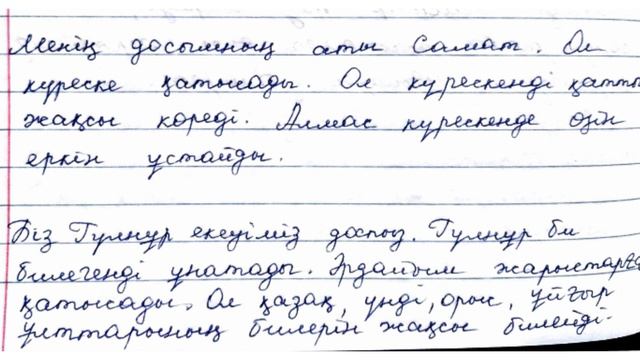 Менің досымның аты Самат. Ол
күреске қатысады. Ол күрескенді қатты
жақсы көреді. Алмас күрескенде өзін
еркін ұстайды.
Біз Гүлнұр екеуіміз доспыз. Гүлнұр би
билегенді ұнатады. Әрдайым жарыстарға
қатысады. Ол қазақ, үнді, орыс, ұйғыр
ұлттарының билерін жақсы билейді.